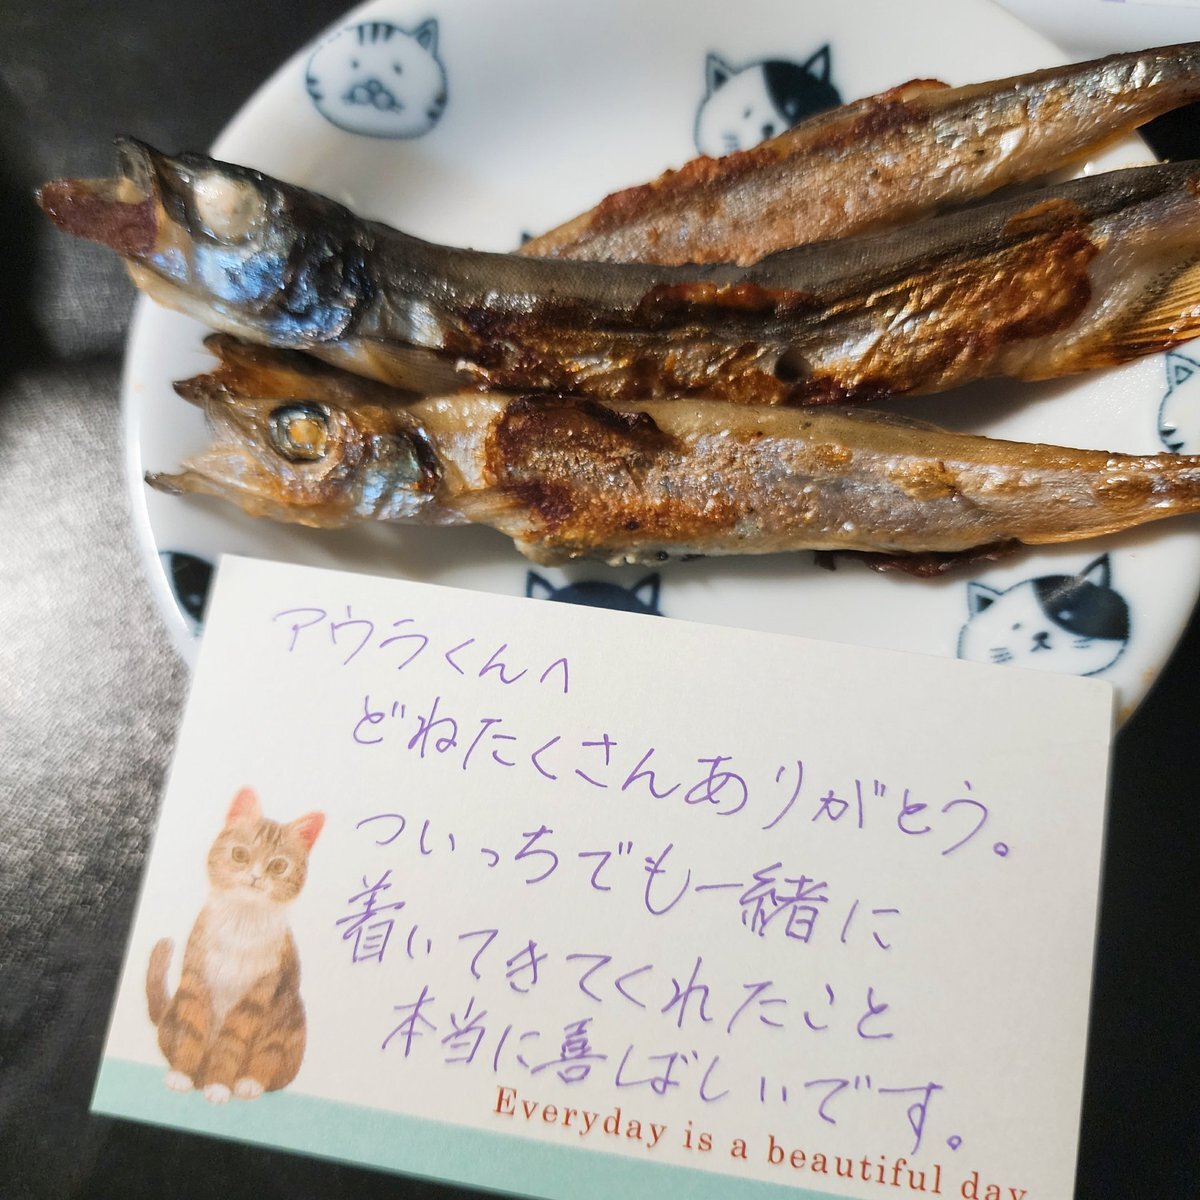 アウラくんへ
どねたくさんありがとう。
ついっちでも一緒に
着いてきてくれたこと
本当に喜ばしいです。
Everyday is a beautiful day